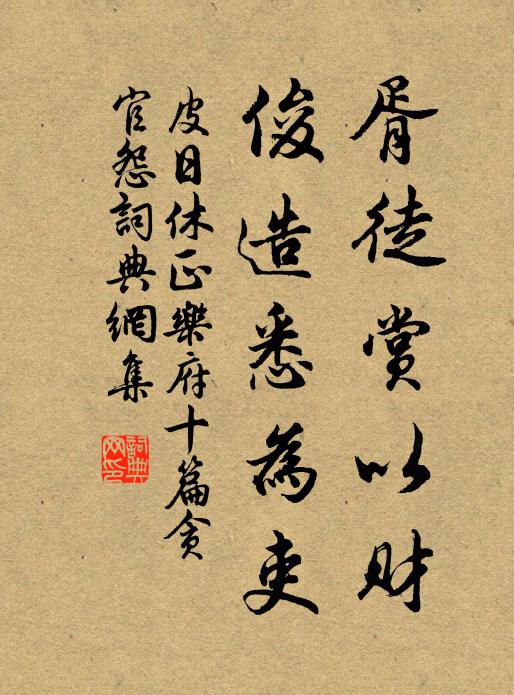 胥徒賞以財
俊造悉為吏
皮日休正樂府十篇貪
官怨詞典網集
詞典
网印